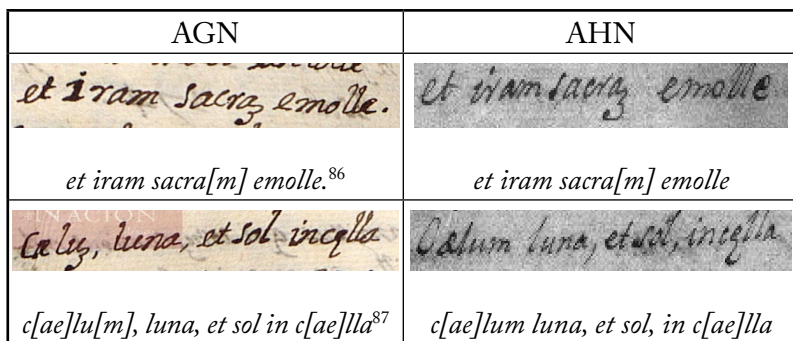 AGN
AHN
et iram sacraȝ emolle.
et iram sacraȝ emolle
et iram sacra[m] emolle.⁸⁶
et iram sacra[m] emolle
N ACION
Cæluȝ, luna, et sol incęlla
Cælum luna, et sol, incęlla
c[ae]lu[m], luna, et sol in c[ae]lla⁸⁷
c[ae]lum luna, et sol, in c[ae]lla